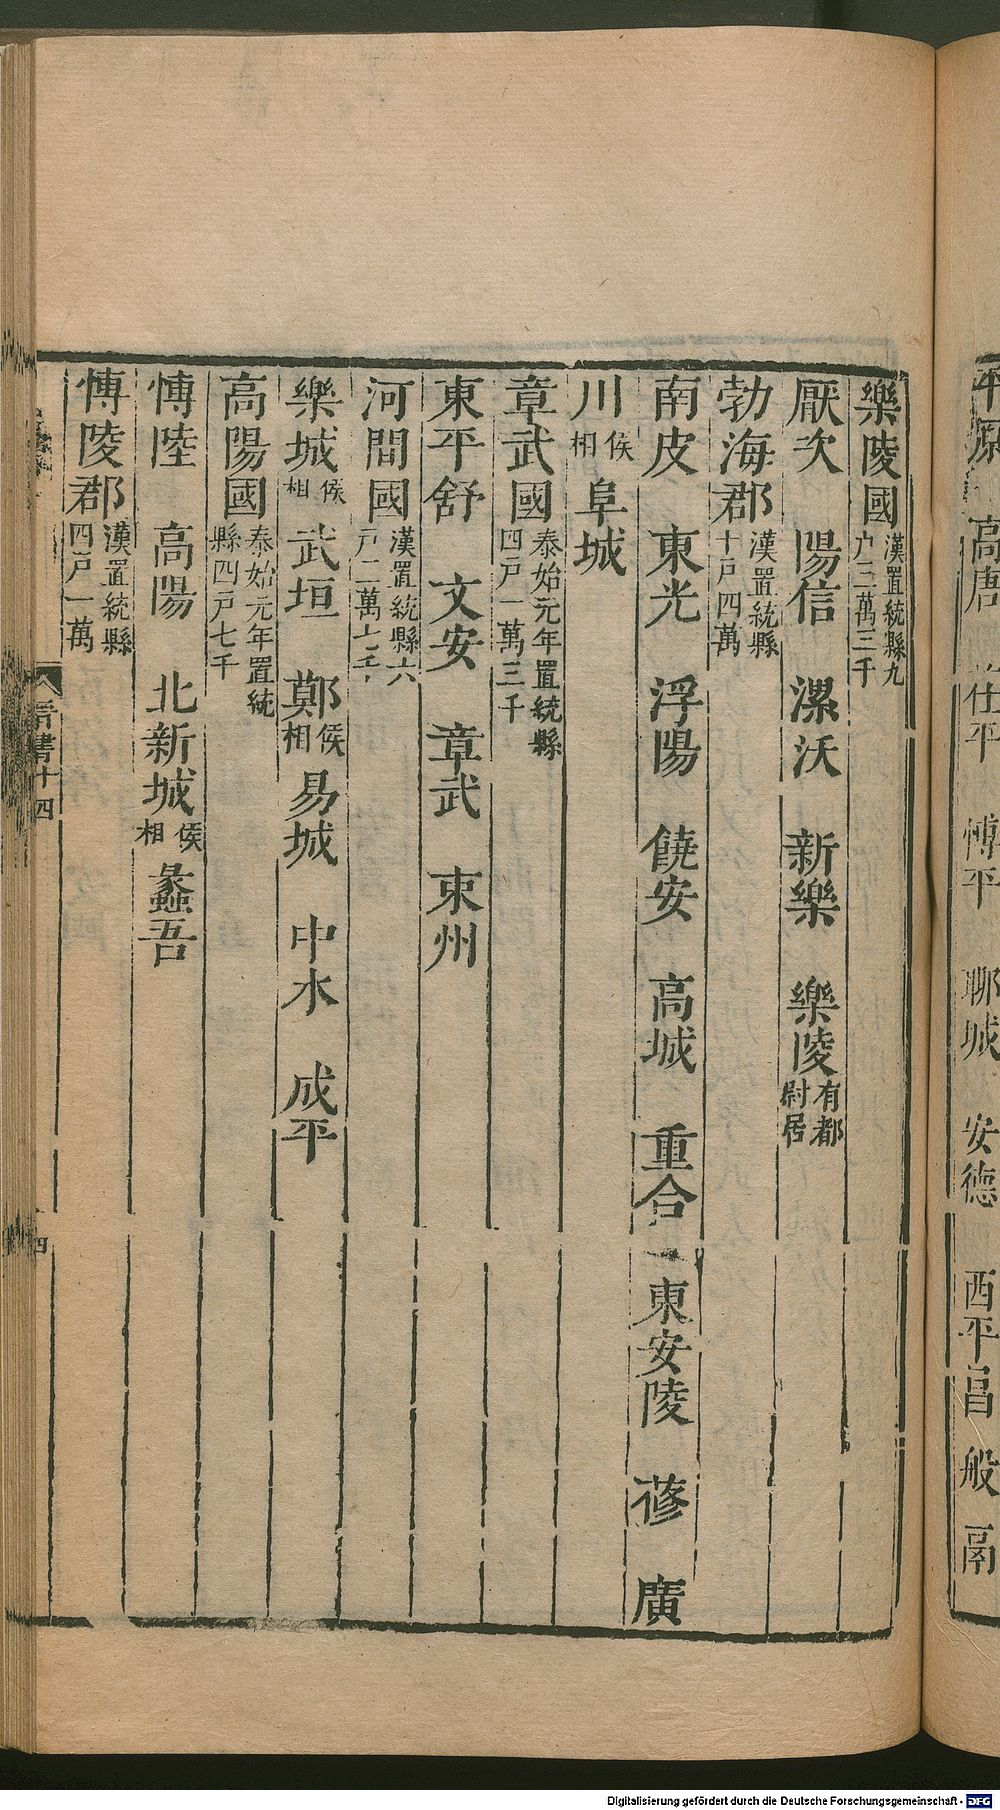 平原 高唐 茌平 博平 聊城 安德 西平昌 般 鬲
樂陵國漢置統縣九户三萬三千
厭次 陽信 漯沃 新樂 樂陵有都尉居
勃海郡漢置統縣十户四萬
南皮 東光 浮陽 饒安 高城 重合 東安陵 蓚 廣
川侯相 阜城
章武國泰始元年置統縣四户一萬三千
東平舒 文安 章武 束州
河間國漢置統縣六户二萬七千
樂城侯相 武垣 鄚侯相 易城 中水 成平
高陽國泰始元年置統縣四户七千
博陸 高陽 北新城侯相 蠡吾
博陵郡漢置統縣四户一萬
晋書十四
四
Digitalisierung gefördert durch die Deutsche Forschungsgemeinschaft - DFG